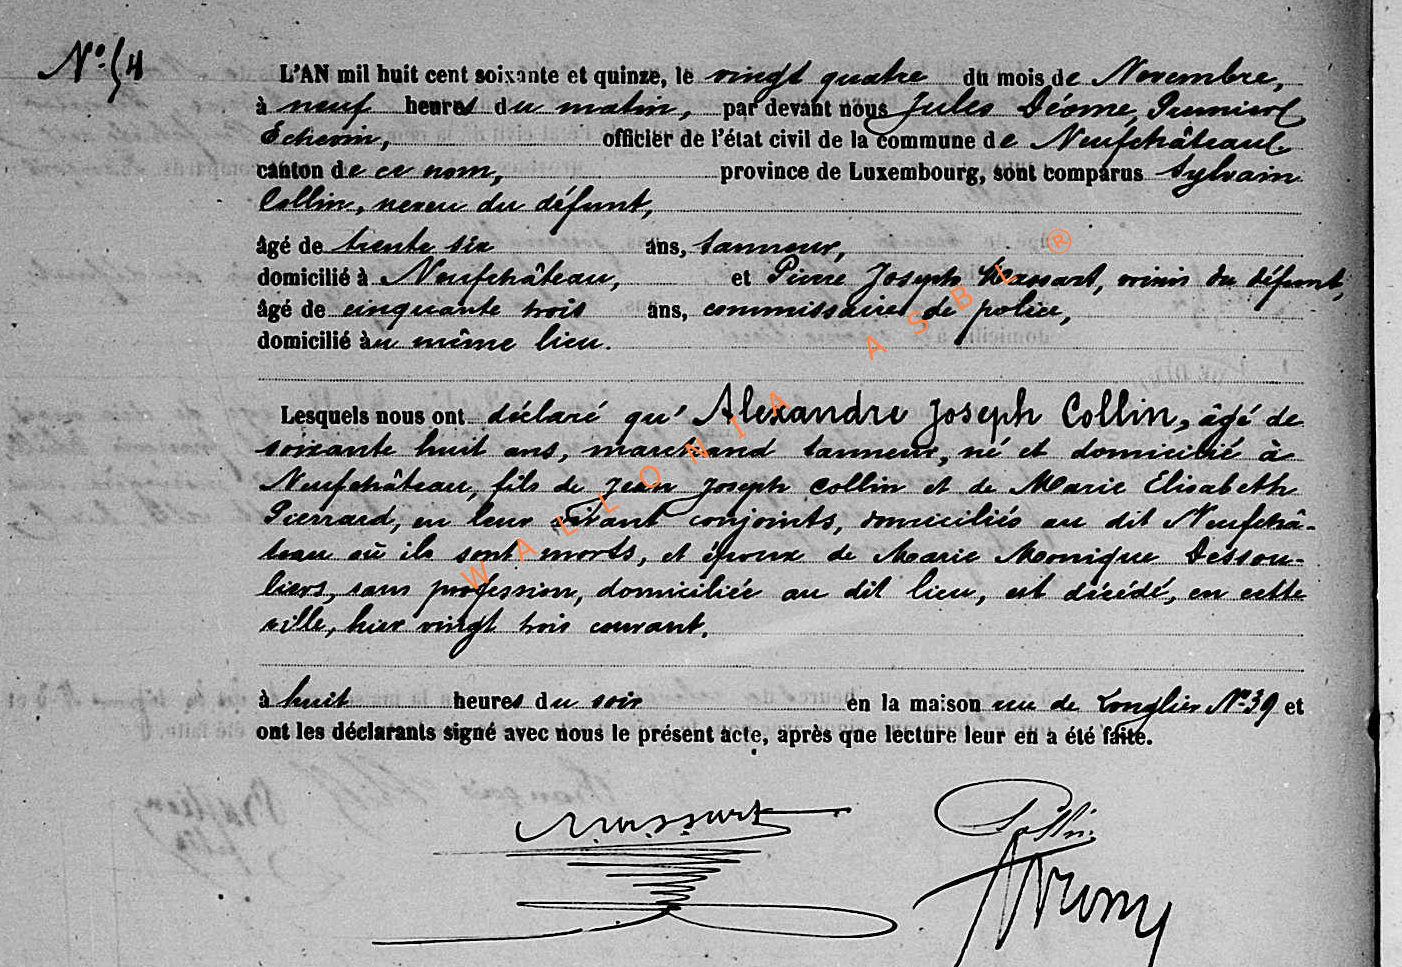 N° 54
L'AN mil huit cent soixante et quinze, le vingt quatre du mois de Novembre,
à neuf heures du matin, par devant nous Jules Déome, Premier
Echevin, officier de l'état civil de la commune de Neufchâteau
canton de ce nom, province de Luxembourg, sont comparus Sylvain
Collin, neveu du défunt,
âgé de trente six ans, tanneur,
domicilié à Neufchâteau, et Pierre Joseph Massart, voisin du défunt,
âgé de cinquante trois ans, commissaire de police,
domicilié au même lieu.
Lesquels nous ont déclaré qu'Alexandre Joseph Collin, âgé de
soixante huit ans, marchand tanneur, né et domicilié à
Neufchâteau, fils de Jean Joseph Collin et de Marie Elisabeth
Pierrard, en leur vivant conjoints, domiciliés au dit Neufchâ-
teau où ils sont morts, et époux de Marie Monique Dessou-
liers, sans profession, domiciliée au dit lieu, est décédé, en cette
ville, hier vingt trois courant.
à huit heures du soir en la maison rue de Longlier N° 39 et
ont les déclarants signé avec nous le présent acte, après que lecture leur en a été faite.
Massart Collin
WALLONIA ASBL ®